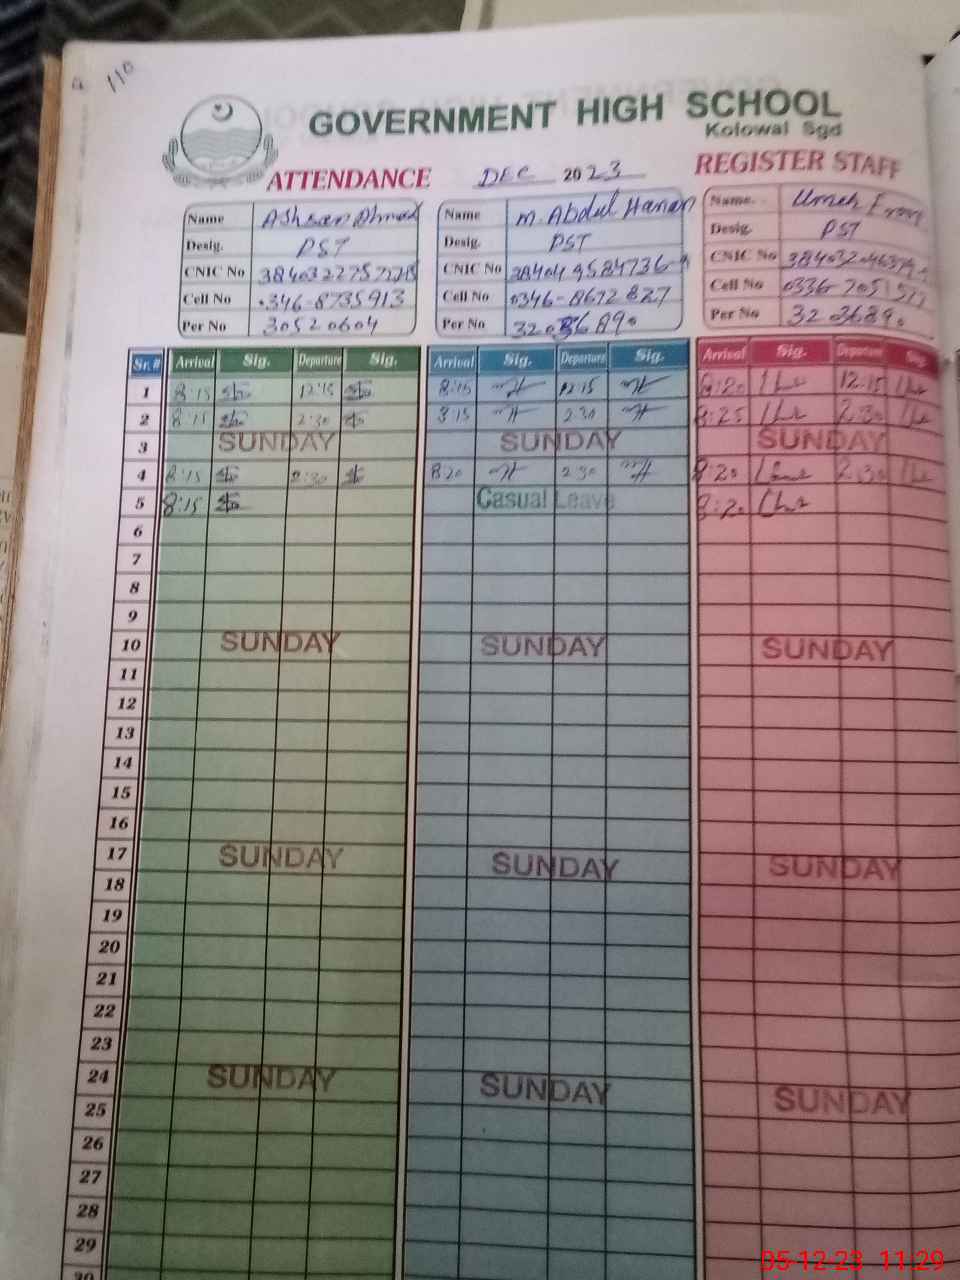 110
GOVERNMENT HIGH SCHOOL
Kolowal Sgd
ATTENDANCE DEC 2023 REGISTER STAFF
Name Ahsan Ahmad Name M. Abdul Hanan Name. Umeh
Desig. PST Desig. PST Desig. PST
CNIC No CNIC No CNIC No
Cell No 0346-8735913 Cell No 0346-8672827 Cell No 0336
Per No 30520604 Per No Per No 3203689
Sr.# Arrival Sig. Departure Sig. Arrival Sig. Departure Sig. Arrival Sig. Departure Sig
1 8:15 12:15 8:15 12:15 8:20 12:15
2 8:15 2:30 8:15 2:30 8:25 2:30
3 SUNDAY SUNDAY SUNDAY
4 8:15 2:30 8:20 2:30 8:20 2:30
5 8:15 Casual Leave 8:20
6
7
8
9
10 SUNDAY SUNDAY SUNDAY
11
12
13
14
15
16
17 SUNDAY SUNDAY SUNDAY
18
19
20
21
22
23
24 SUNDAY SUNDAY SUNDAY
25
26
27
28
29
30
05-12-23 11:29